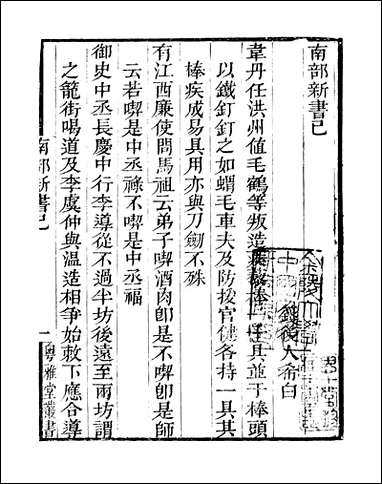 南部新書己
錢後人希白
韋丹任洪州值毛鶴等叛造蒺藜棒一千具並于棒頭
以鐵釘釘之如蝟毛車夫及防援官健各持一具其
棒疾成易具用亦與刀劍不殊
有江西廉使問馬祖云弟子喫酒肉卽是不喫卽是師
云若喫是中丞祿不喫是中丞福
御史中丞長慶中行李導從不過半坊後遠至兩坊謂
之籠街喝道及李虞仲與溫造相爭始敕下應合導
南部新書己
一
粤雅堂叢書